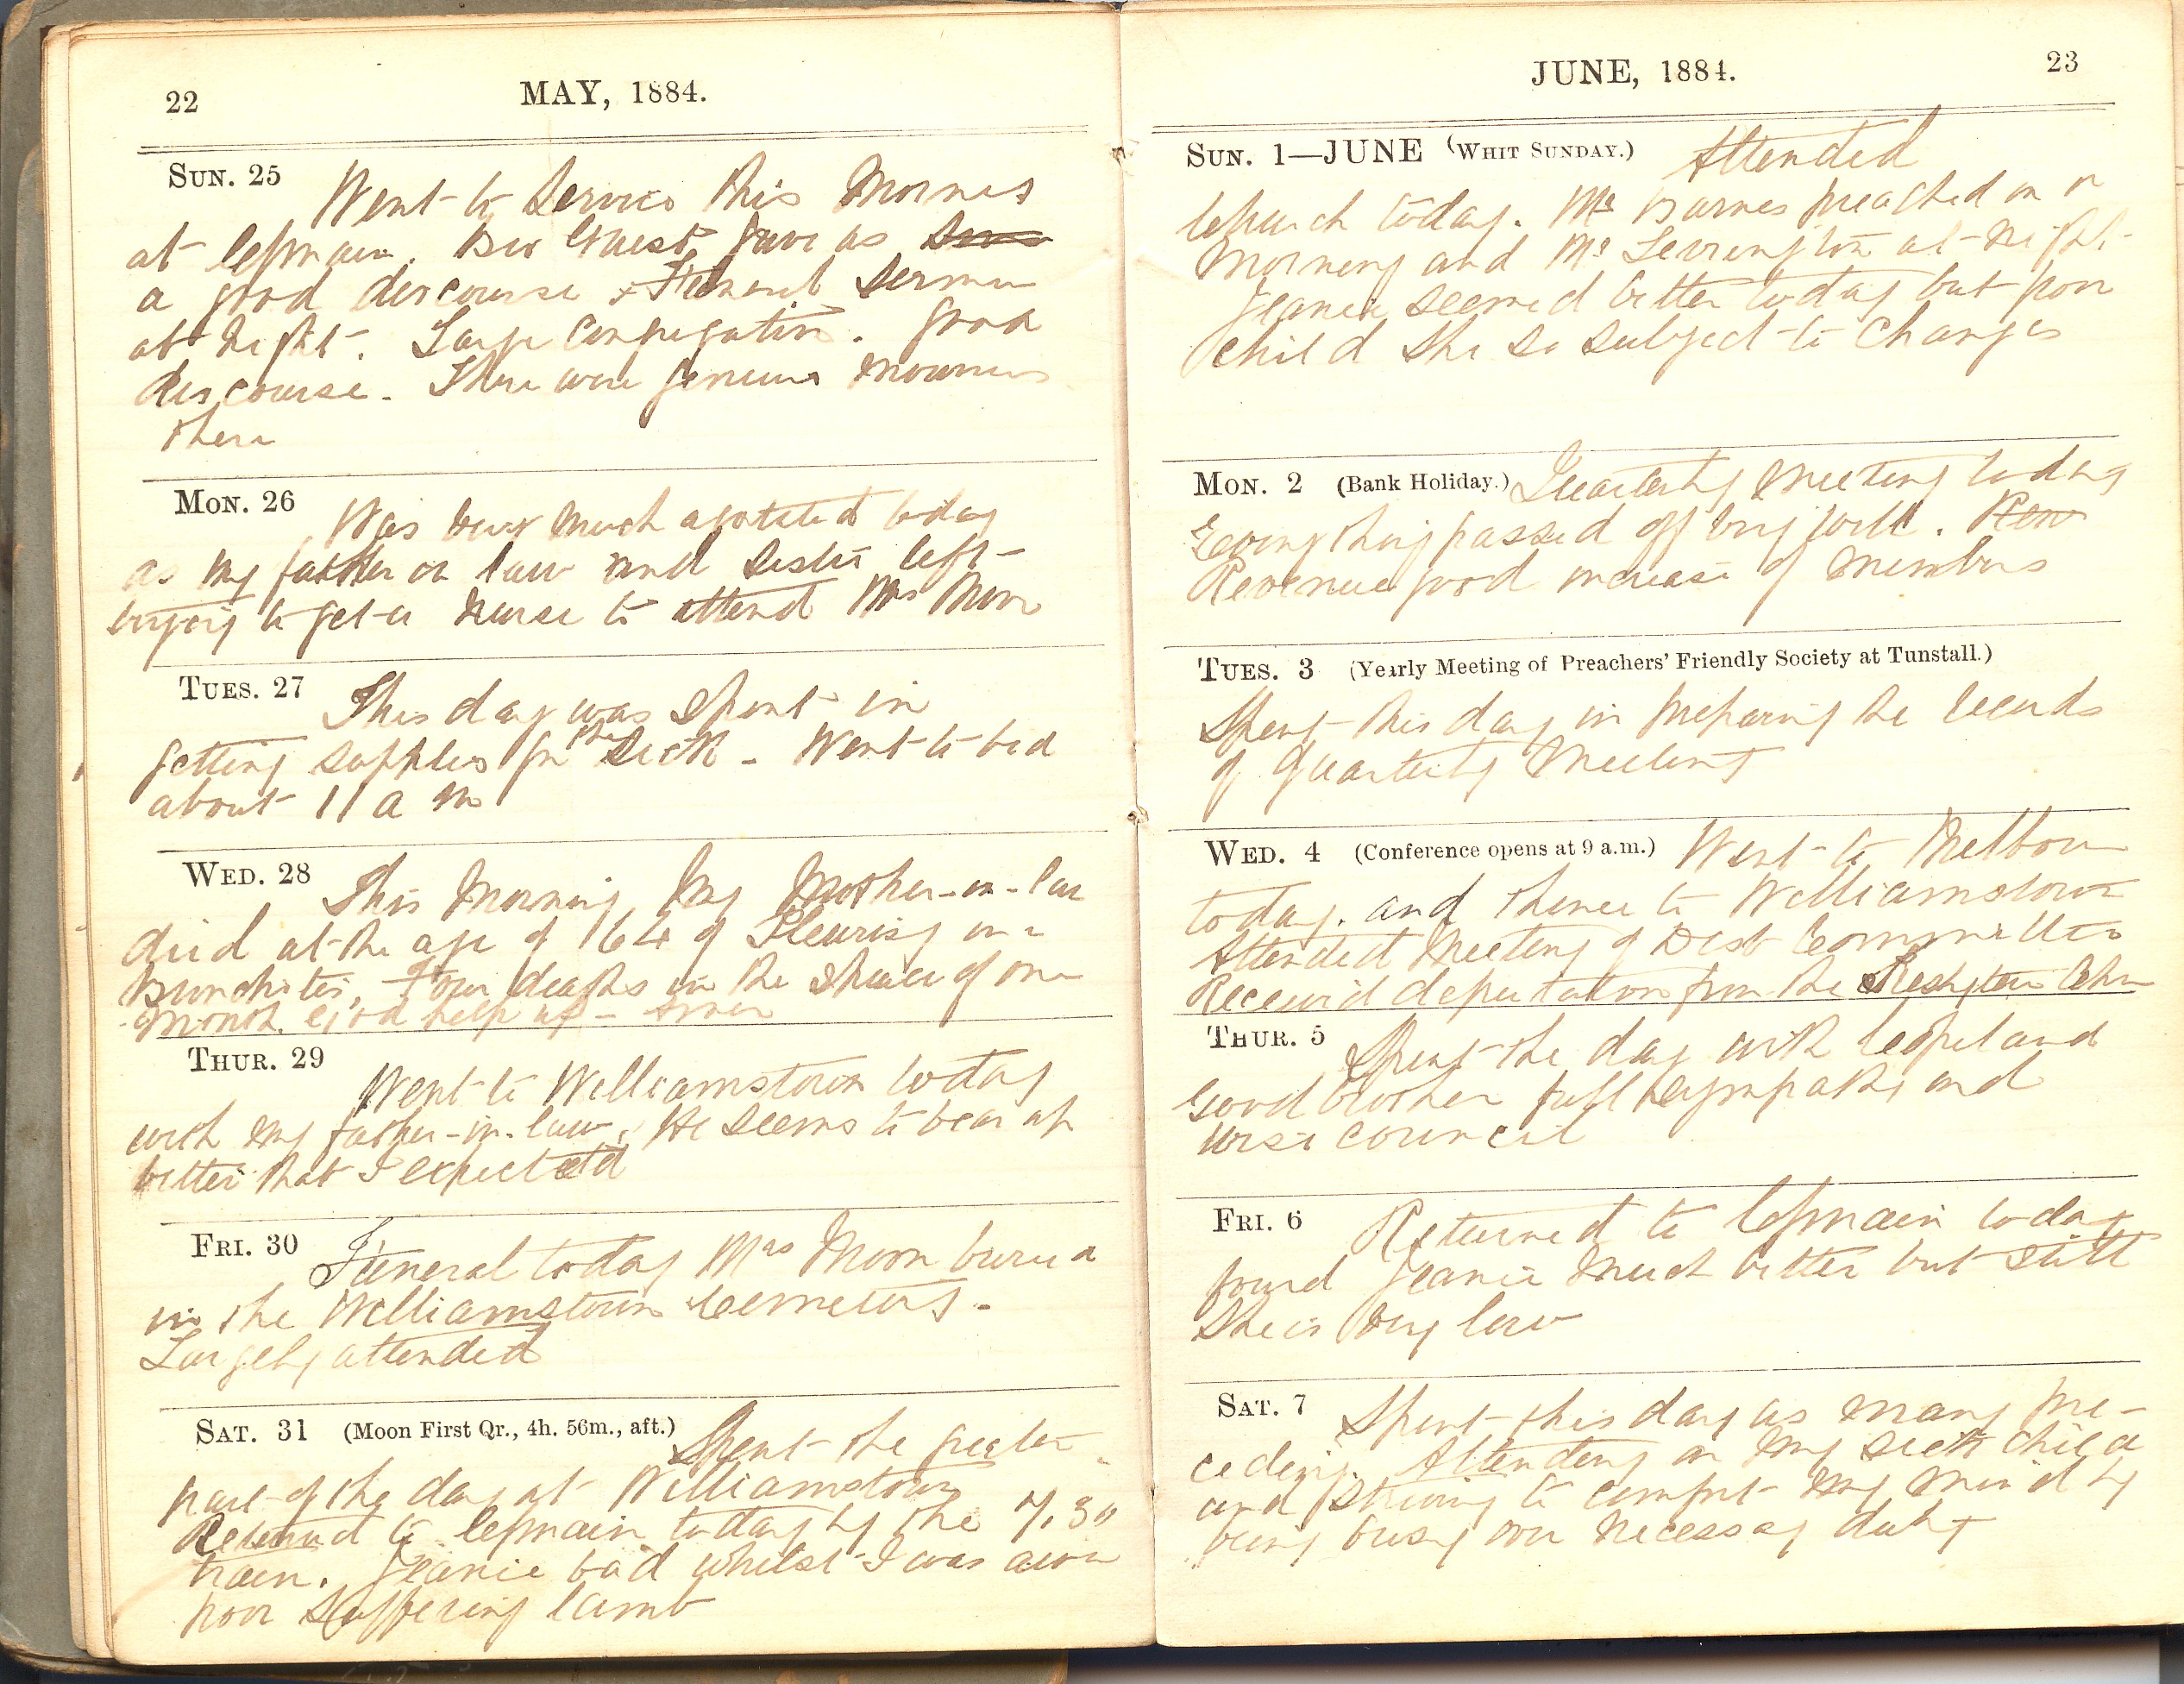 22 MAY, 1884.
SUN. 25 Went to Service this Morning
at Chmain. Bro Guest gave us
a good discourse & Funeral Sermon
at Night. Large Congregation. Good
discourse. There were genuine mourners
there
MON. 26 Was very much agatated today
as my father in law and Sister left
trying to get a nurse to attend Mrs Moon
TUES. 27 This day was Spent in
getting supplies for the Sick - Went to bed
about 11 a m
WED. 28 This Morning My Mother-in-law
died at the age of 64 of Pleurisy and
Bronchites. Four deaths in the Space of one
Month. God help us - Amen
THUR. 29 Went to Williamstown today
with my father-in-law. He seems to bear up
better that I expected
FRI. 30 Funeral today Mrs Moon buried
in the Williamstown Cemetery -
Largely attended
SAT. 31 (Moon First Qr., 4h. 56m., aft.) Spent the greater
part of the day at Williamstown
Returned to today by the 7.30
train. Jeanie bad whilst I was away
poor Suffering lamb
JUNE, 1884. 23
SUN. 1—JUNE (WHIT SUNDAY.) Attended
Church today. Mr Barnes preached in
Morning and Mr at Night
Jeanie seemed better today but poor
child she so subject to Changes
MON. 2 (Bank Holiday.) Quarterly Meeting today
Everything passed off very well. Reve
Revenue good increase of Members
TUES. 3 (Yearly Meeting of Preachers' Friendly Society at Tunstall.)
Spent this day in preparing the records
of Quarterly Meeting
WED. 4 (Conference opens at 9 a.m.) Went to Melbourn
today. and thence to Williamstown
Attended Meeting of Dist Committee
Received deputation from the
THUR. 5 Spent the day with Copeland
Good brother full sympathy and
wise council
FRI. 6 Returned to today
found Jeanie much better but still
She is very low
SAT. 7 Spent this day as many pre-
ceding. Attending on my sick child
and Striving to comfort my mind by
being busy over necessary duty